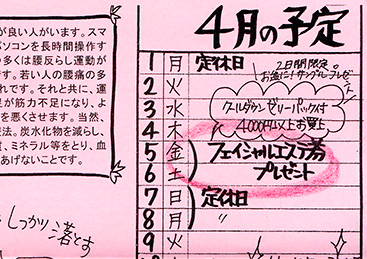 が良い人がいます。スマ
パソコンを長時間操作す
多くは腰反らし運動が
です。若い人の腰痛の多
れです。それと共に、運
足が筋力不足になり、よ
を悪くさせます。当然、
療法。炭水化物を減らし、
質、ミネラル等をとり、血
あげないことです。
しっかり落とす
4月の予定
1 月 定休日
2日間限定。
お金に!サンプルプレゼント
2 火
3 水 クールダウンゼリーパック付
4 木 4000円以上お買上
5 金 フェイシャルエステ券
6 土 プレゼント
7 日 定休日
8 月 〃
9 火